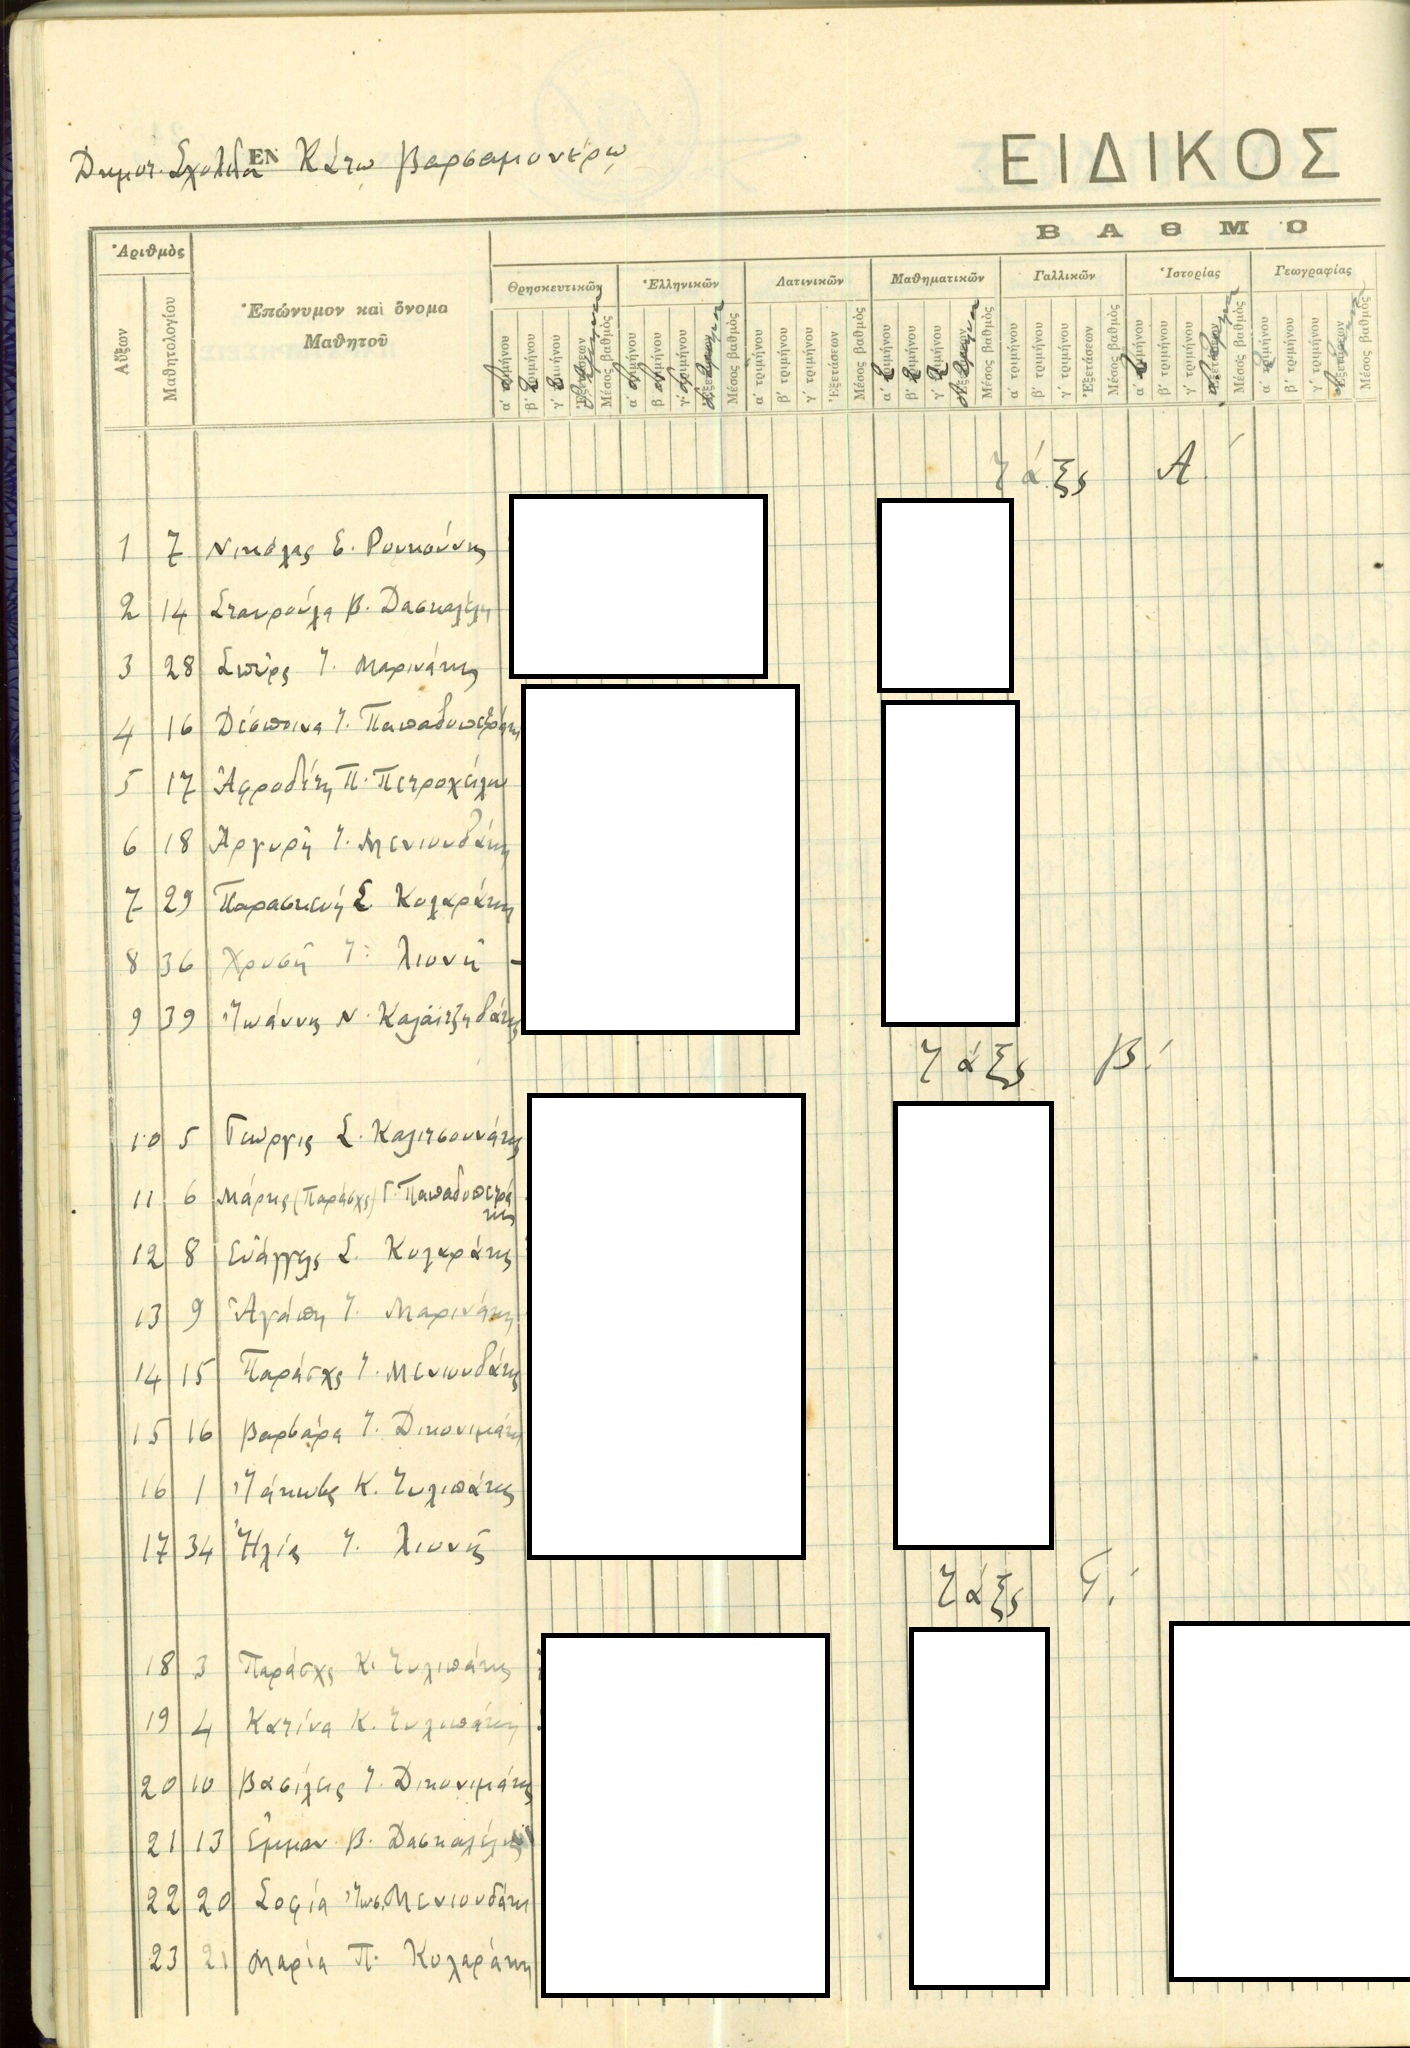 Δημοτ. Σχολεῖα ΕΝ Κάτω Βαρσαμονέρῳ
ΕΙΔΙΚΟΣ
ΒΑΘΜΟ
Ἀριθμὸς
Αὔξων
Μαθητολογίου
Ἐπώνυμον καὶ ὄνομα
Μαθητοῦ
Θρησκευτικῶν Ἑλληνικῶν Λατινικῶν Μαθηματικῶν Γαλλικῶν Ἱστορίας Γεωγραφίας
α΄ τριμήνου β΄ τριμήνου γ΄ τριμήνου Ἐξετάσεων Μέσος βαθμὸς
α΄ τριμήνου β΄ τριμήνου γ΄ τριμήνου Ἐξετάσεων Μέσος βαθμὸς
α΄ τριμήνου β΄ τριμήνου γ΄ τριμήνου Ἐξετάσεων Μέσος βαθμὸς
α΄ τριμήνου β΄ τριμήνου γ΄ τριμήνου Ἐξετάσεων Μέσος βαθμὸς
α΄ τριμήνου β΄ τριμήνου γ΄ τριμήνου Ἐξετάσεων Μέσος βαθμὸς
α΄ τριμήνου β΄ τριμήνου γ΄ τριμήνου Ἐξετάσεων Μέσος βαθμὸς
α΄ τριμήνου β΄ τριμήνου γ΄ τριμήνου Ἐξετάσεων Μέσος βαθμὸς
Τάξις Α΄
1 7 Νικόλαος Ε. Ρουκούνης
2 14 Σταυρούλα Β. Δασκαλάκη
3 28 Σπῦρος Ι. Μαρινάκης
4 16 Δέσποινα Ι. Παπαδοπετράκη
5 17 Ἀφροδίτη Π. Πετροχείλου
6 18 Ἀργυρῆ Ι. Μενιουδάκη
7 29 Παρασκευή Σ Κυλαράκη
8 36 Χρυσῆ Ι. Λιονῆ
9 39 Ἰωάννης Ν. Καλαϊτζιδάκης
Τάξις Β΄
10 5 Γεώργιος Σ. Καλιτσουνάκης
11 6 Μάρκος (Παράσχος) Γ. Παπαδοπετράκης
12 8 Εὐάγγελος Σ. Κυλαράκης
13 9 Ἀγάπη Ι. Μαρινάκη
14 15 Παράσχος Ι. Μενιουδάκης
15 16 Βαρβάρα Ι. Οἰκονομάκη
16 1 Ἰάκωβος Κ. Τυλιπάκης
17 34 Ἠλίας Ι. Λιονῆς
Τάξις Γ΄
18 3 Παράσχος Κ. Τυλιπάκης
19 4 Κατίνα Κ. Τυλιπάκη
20 10 Βασίλειος Ι. Οἰκονομάκης
21 13 Ἐμμαν. Β. Δασκαλάκης
22 20 Σοφία Ἰωσ. Μενιουδάκη
23 21 Μαρία Π. Κυλαράκη